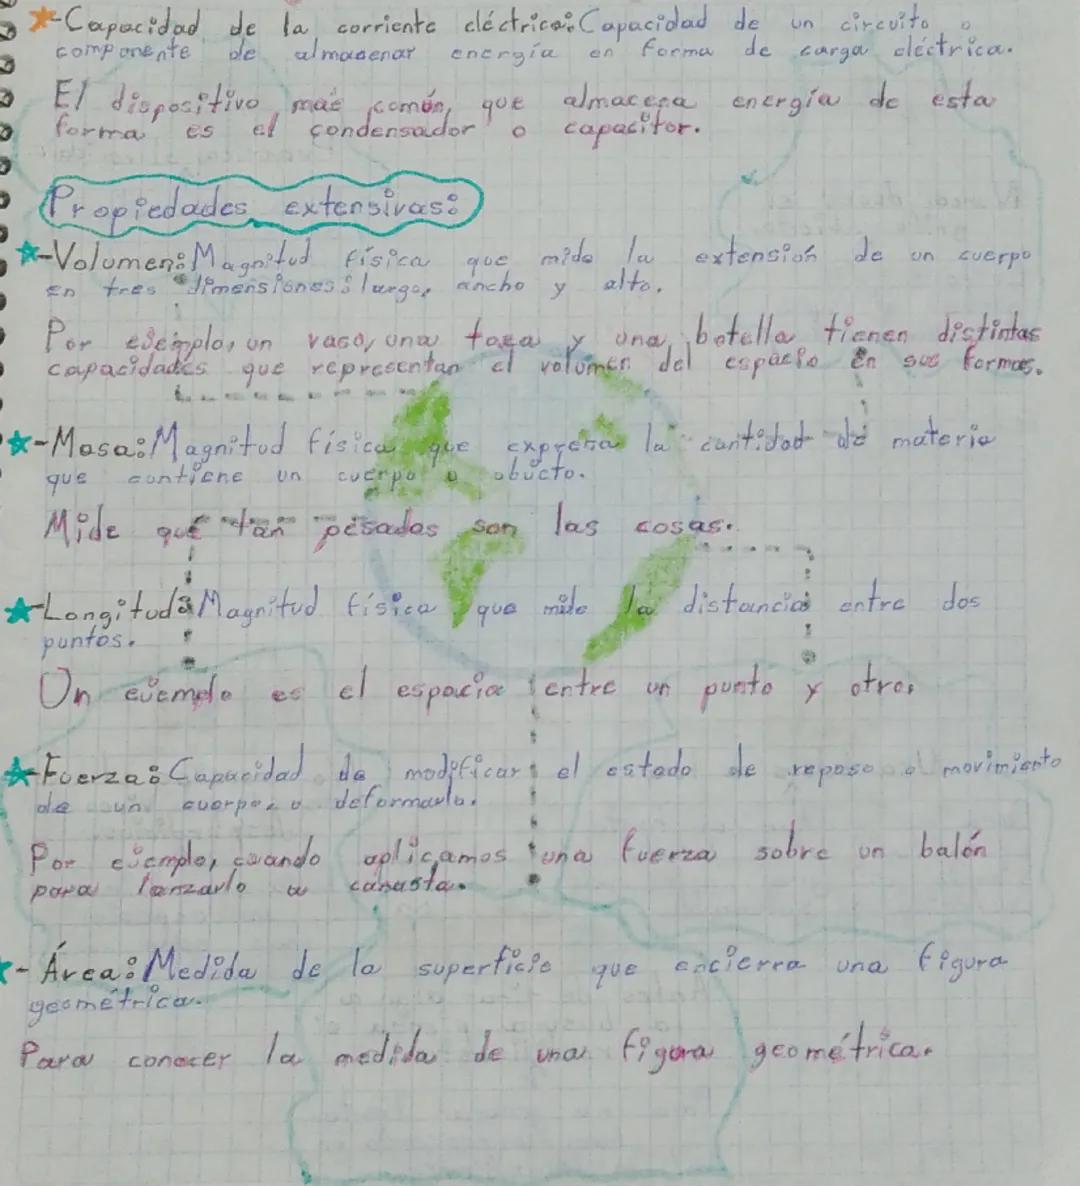 -Capacidad de la corriente eléctrica: Capacidad de un circuito o
componente de almacenar energía en forma de carga eléctrica.
El dispositivo más común, que almacena energía de esta
forma es el condensador o capacitor.
Propiedades extensivas:
-Volumen: Magnitud física que mide la extensión de un cuerpo
en tres dimensiones: largo, ancho y alto.
Por ejemplo, un vaso, una taza y una botella tienen distintas
capacidades que representan el volumen del espacio en sus formas.
-Masa: Magnitud física que expresa la cantidad de materia
que contiene un cuerpo o objeto.
Mide que tan pesadas son las cosas.
-Longitud: Magnitud física que mide la distancia entre dos
puntos.
Un ejemplo es el espacio entre un punto y otro.
-Fuerza: Capacidad de modificar el estado de reposo o movimiento
de un cuerpo, o deformarlo.
Por ejemplo, cuando aplicamos una fuerza sobre un balón
para lanzarlo a canasta.
- Área: Medida de la superficie que encierra una figura
geométrica.
Para conocer la medida de una figura geométrica.